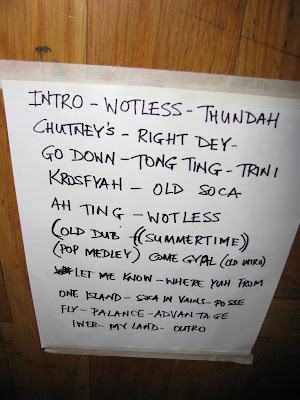 INTRO - WOTLESS - THUNDAH
CHUTNEY'S - RIGHT DEY -
GO DOWN - TONG TING - TRINI
KROSFYAH - OLD SOCA
AH TING - WOTLESS
(OLD DUB) ((SUMMERTIME))
(POP MEDLEY) COME GYAL (OLD INTRO)
LET ME KNOW - WHERE YUH FROM
ONE ISLAND - SOCA IN VAINS - POSSE
FLY - PALANCE - ADVANTAGE
IWER - MY LAND - OUTRO